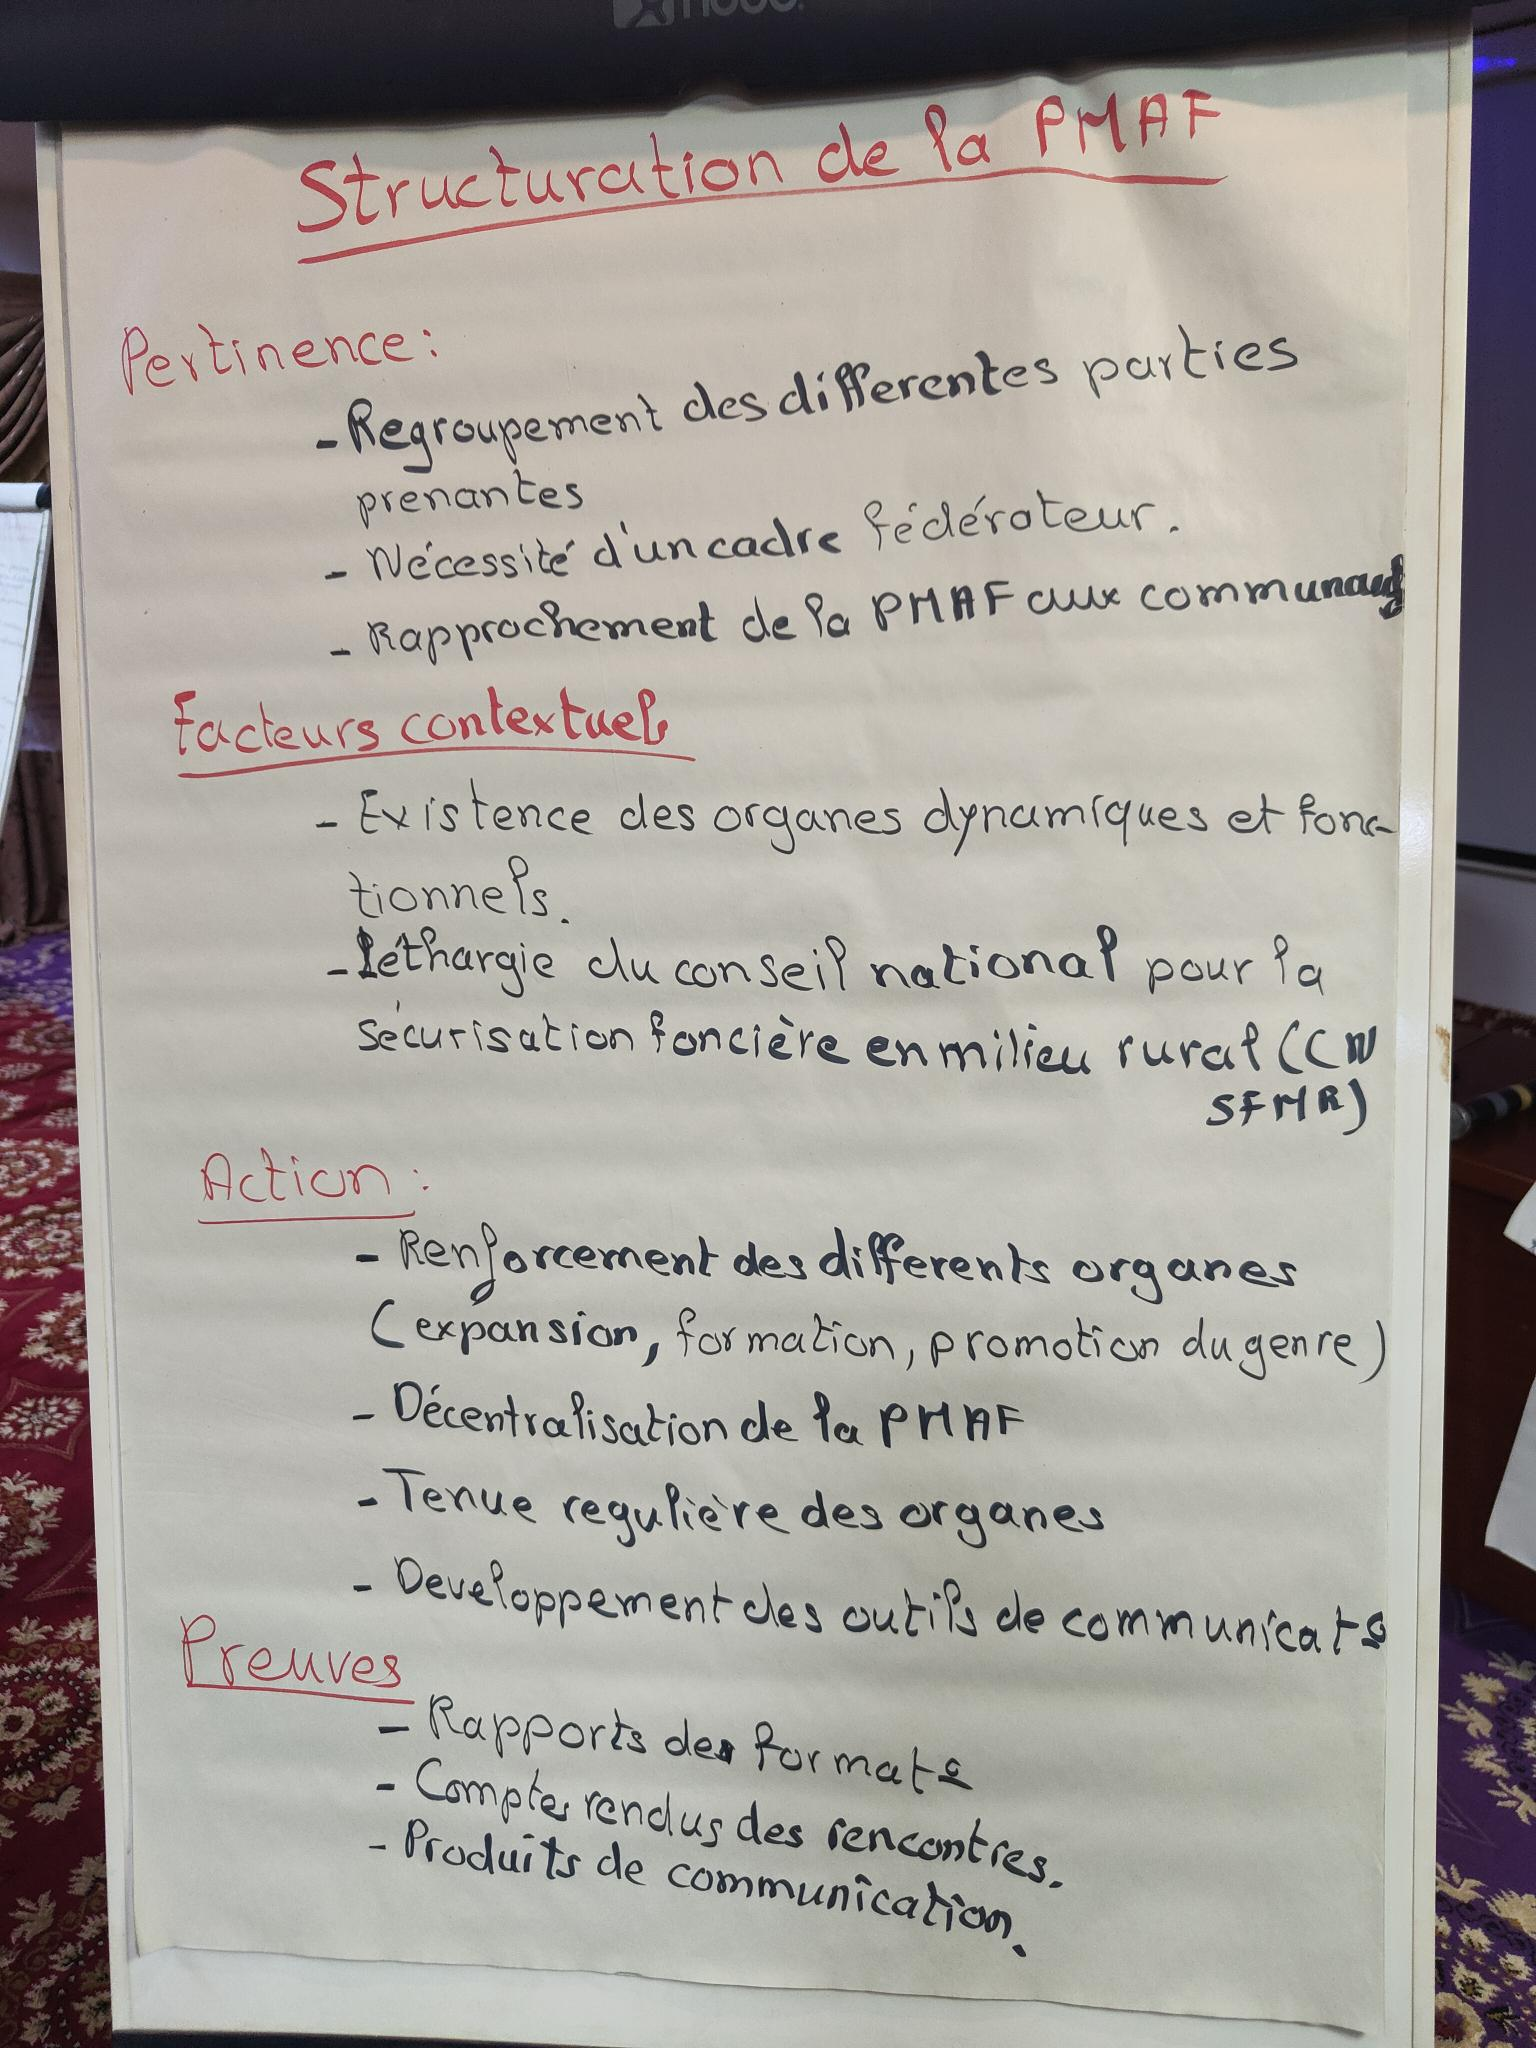 nobo
Structuration de la PMAF
Pertinence :
- Regroupement des differentes parties
prenantes
- Nécessité d'un cadre fédérateur.
- Rapprochement de la PMAF aux
Facteurs contextuels
- Existence des organes dynamiques et fonc-
tionnels.
- Léthargie du conseil national pour la
sécurisation foncière en milieu rural (CN
SFMR)
Action :
- Renforcement des differents organes
(expansion, formation, promotion du genre)
- Décentralisation de la PMAF
- Tenue regulière des organes
- Developpement des outils de communicat°
Preuves
- Rapports des format°
- Comptes rendus des rencontres.
- Produits de communication.